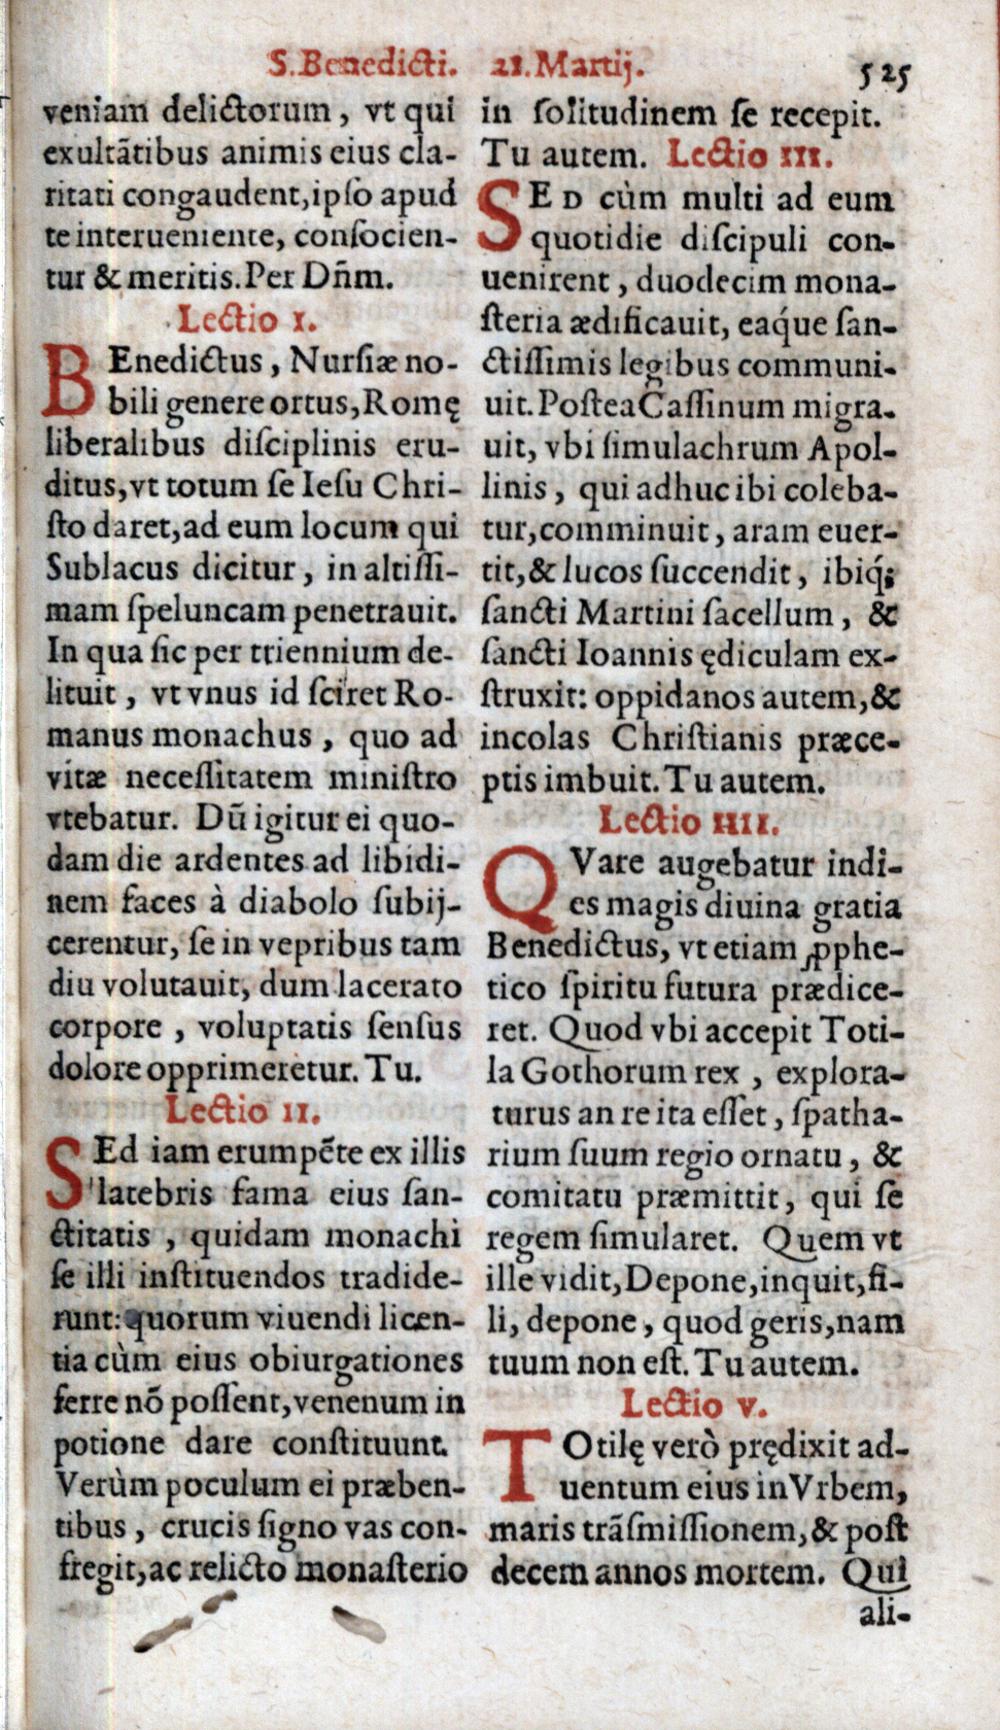 S. Benedicti. 21. Martij. 525
veniam delictorum, vt qui
exultãtibus animis eius cla-
ritati congaudent, ipſo apud
te interueniente, conſocien-
tur & meritis. Per Dñm.
Lectio I.
BEnedictus, Nurſiæ no-
bili genere ortus, Romę
liberalibus diſciplinis eru-
ditus, vt totum ſe Ieſu Chri-
ſto daret, ad eum locum qui
Sublacus dicitur, in altiſſi-
mam ſpeluncam penetrauit.
In qua ſic per triennium de-
lituit, vt vnus id ſciret Ro-
manus monachus, quo ad
vitæ neceſſitatem miniſtro
vtebatur. Dũ igitur ei quo-
dam die ardentes ad libidi-
nem faces à diabolo ſubij-
cerentur, ſe in vepribus tam
diu volutauit, dum lacerato
corpore, voluptatis ſenſus
dolore opprimeretur. Tu.
Lectio II.
SEd iam erumpẽte ex illis
latebris fama eius ſan-
ctitatis, quidam monachi
ſe illi inſtituendos tradide-
runt: quorum viuendi licen-
tia cùm eius obiurgationes
ferre nõ poſſent, venenum in
potione dare conſtituunt.
Verùm poculum ei præben-
tibus, crucis ſigno vas con-
fregit, ac relicto monaſterio
in ſolitudinem ſe recepit.
Tu autem. Lectio III.
SED cùm multi ad eum
quotidie diſcipuli con-
uenirent, duodecim mona-
ſteria ædificauit, eaq́ue ſan-
ctiſſimis legibus communi-
uit. Poſtea Caſſinum migra-
uit, vbi ſimulachrum Apol-
linis, qui adhuc ibi coleba-
tur, comminuit, aram euer-
tit, & lucos ſuccendit, ibiq́;
ſancti Martini ſacellum, &
ſancti Ioannis ędiculam ex-
ſtruxit: oppidanos autem, &
incolas Chriſtianis præce-
ptis imbuit. Tu autem.
Lectio IIII.
QVare augebatur indi-
es magis diuina gratia
Benedictus, vt etiam ꝓphe-
tico ſpiritu futura prædice-
ret. Quod vbi accepit Toti-
la Gothorum rex, explora-
turus an re ita eſſet, ſpatha-
rium ſuum regio ornatu, &
comitatu præmittit, qui ſe
regem ſimularet. Quem vt
ille vidit, Depone, inquit, fi-
li, depone, quod geris, nam
tuum non eſt. Tu autem.
Lectio V.
TOtilę verò prędixit ad-
uentum eius in Vrbem,
maris trãſmiſſionem, & poſt
decem annos mortem. Qui
ali-